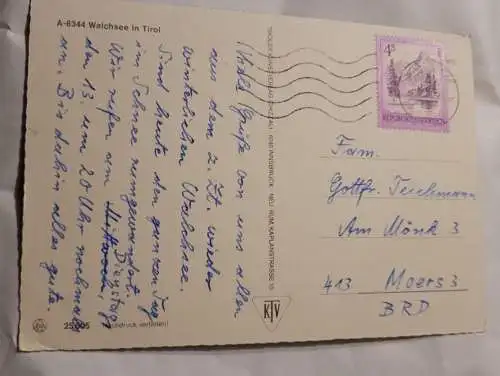 A-6344 Walchsee in Tirol
Viele Grüße von uns allen
aus dem z. Zt. wieder
winterlichen Walchsee.
Sind heute den ganzen Tag
im Schnee rumgewandert.
Wir rufen am Mittwoch,
Dienstag
den 13. um 20 Uhr nochmals
an. Bis dahin alles gute.
TIROLER KUNSTVERLAG CHIZZALI · 6040 INNSBRUCK · NEU RUM, KAPLANSTRASSE 15
4S
REPUBLIK ÖSTERREICH
Fam.
Gottfr. Teichmann
Am Mönk 3
413 Moers 3
BRD
KTV
Nachdruck verboten!